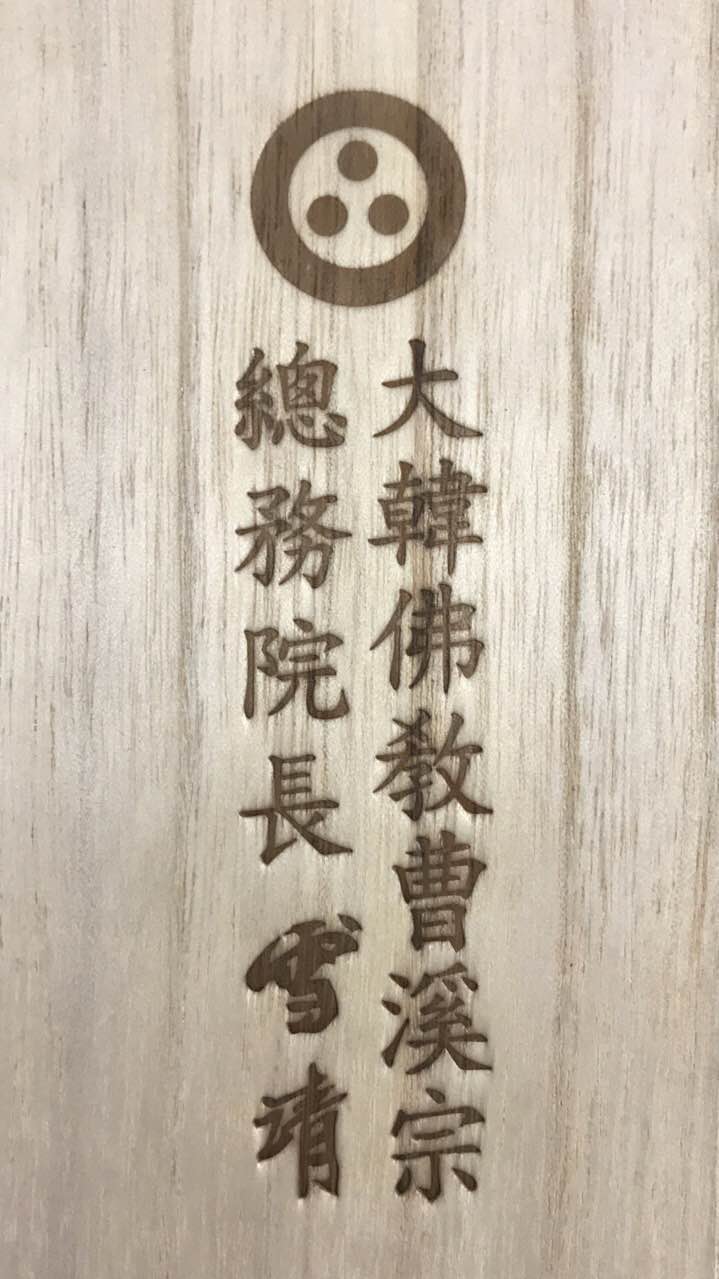 大韓佛敎曹溪宗
總務院長 雪靖